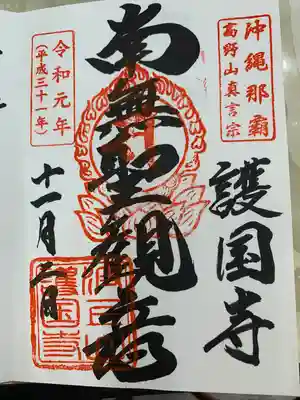 沖縄那覇
高野山真言宗
護国寺
南無聖観音
令和元年
(平成三十一年)
十一月二日